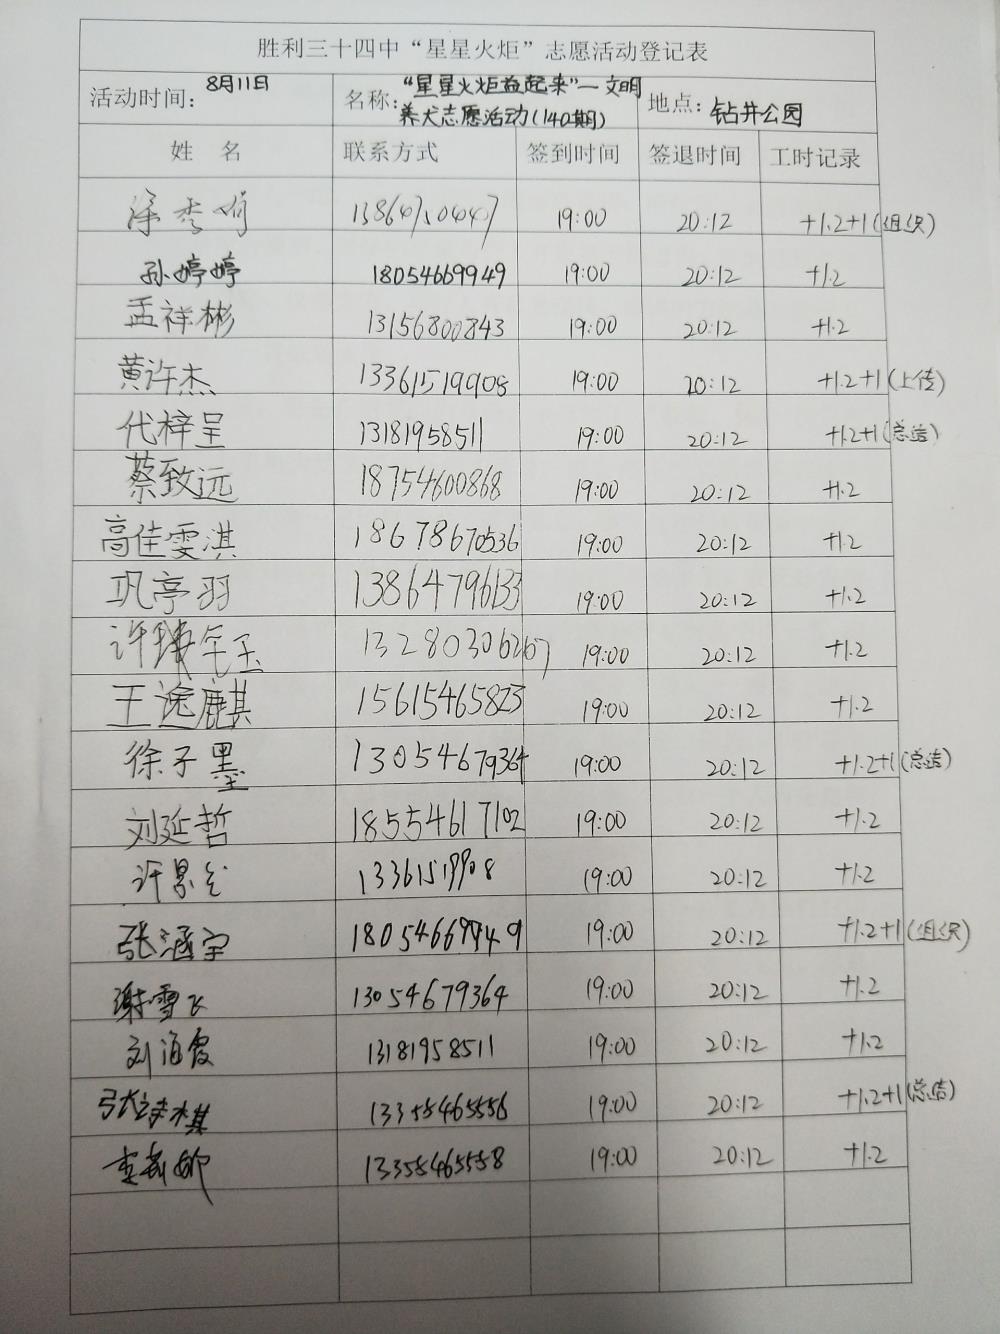 胜利三十四中“星星火炬”志愿活动登记表
活动时间: 8月11日 名称: “星星火炬益起来”—文明养犬志愿活动(140期) 地点: 钻井公园
姓 名 联系方式 签到时间 签退时间 工时记录
19:00 20:12 +1.2+1(组织)
孙婷婷 18054669949 19:00 20:12 +1.2
孟祥彬 13156800843 19:00 20:12 +1.2
黄许杰 13361519908 19:00 20:12 +1.2+1(上传)
代梓呈 13181958511 19:00 20:12 +1.2+1(总结)
蔡致远 18754600868 19:00 20:12 +1.2
高佳雯淇 18678670536 19:00 20:12 +1.2
巩亭羽 13864796133 19:00 20:12 +1.2
13280306267 19:00 20:12 +1.2
王逸麒 15615465823 19:00 20:12 +1.2
徐子墨 13054679364 19:00 20:12 +1.2+1(总结)
刘延哲 18554617102 19:00 20:12 +1.2
13361519908 19:00 20:12 +1.2
张涵宇 18054669949 19:00 20:12 +1.2+1(组织)
谢雪飞 13054679364 19:00 20:12 +1.2
刘海霞 13181958511 19:00 20:12 +1.2
13355465556 19:00 20:12 +1.2+1(总结)
13355465558 19:00 20:12 +1.2